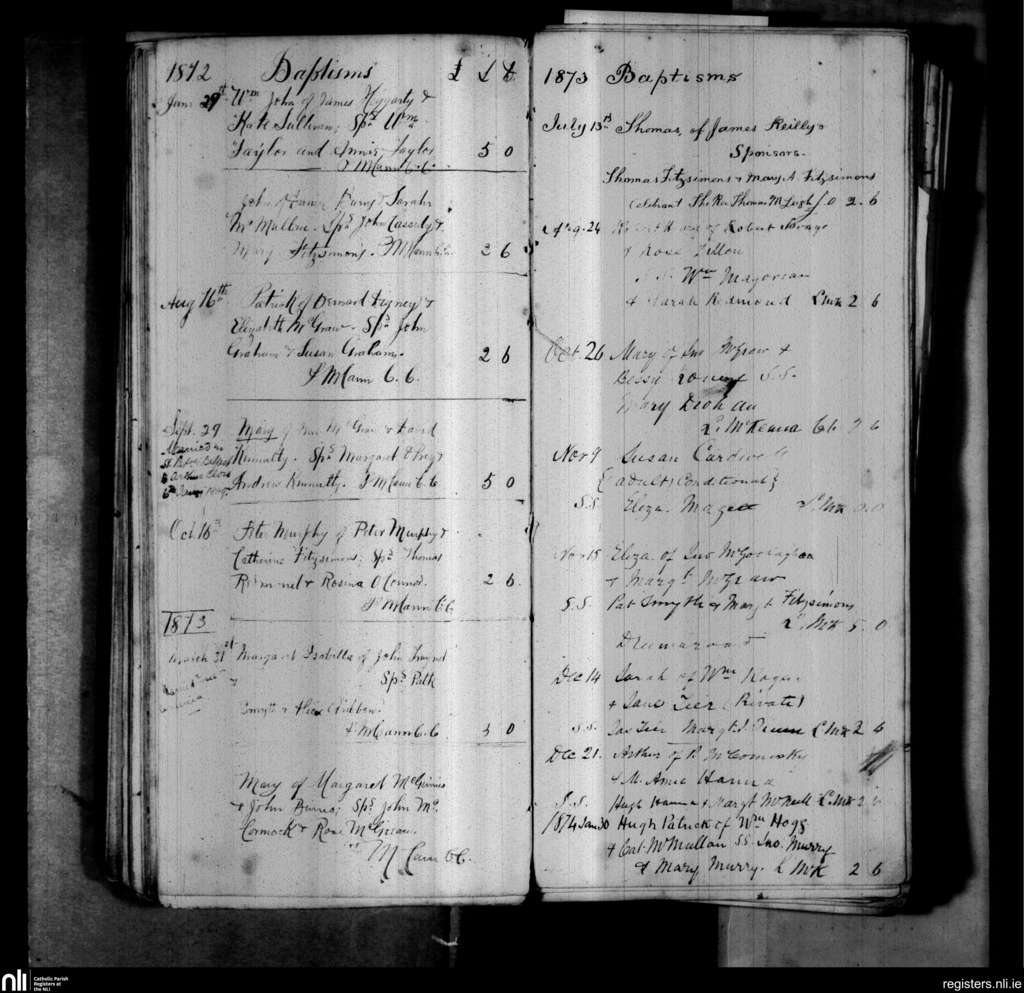 1872 Baptisms £ s d.
Jan. 29th Wm John of James Hagarty &
Kate Sullivan; Sps Wm
Taylor and Annie Taylor 5 0
P McCann C.C.
John of James Burns & Sarah
McMullen. Sps John Cassidy &
Mary Fitzsimons. P McCann C.C. 2 6
Aug 16th Patrick of Bernard Digney &
Elizabeth McGraw. Sps John
Graham & Susan Graham. 2 6
P McCann C.C.
Sept. 29 Mary of McGraw &
Married in
St Peters Belfast
to Arthur
6th
Kennedy. Sps Margaret &
Andrew Kennedy. P McCann C.C. 5 0
Oct 16th Peter Murphy of Peter Murphy &
Catherine Fitzsimons; Sps Thomas
& Rosena O'Connor. 2 6.
P McCann C.C.
1873
March 31st Margaret Isabella of John
Sps Patk
Smyth & Alice
P McCann C.C. 5 0
Mary of Margaret McGinnis
& John Burns; Sps John Mc
Cormack & Rose McGreean.
McCann C.C.
1873 Baptisms
July 13th Thomas, of James Reilly &
Sponsors.
Thomas Fitzsimons & Mary A Fitzsimons
Celebrant The Rev Thomas McLeigh 0 2.6
Aug. 24 of Robert Savage
& Rose Dillon
S.S. Wm Magorrian
& Sarah Redmond L McK 2 6
Oct. 26 Mary of Jno McGraw &
Bessie S.S.
Mary
L. McKenna CC 2 6
Nov 9 Susan Cardwell
{adult, Conditional}
S.S. Eliza Magee L. McK 0.0
Nov 15 Eliza of Jno McGouaghan
& Margt McGraw
S.S. Pat Smyth & Margt Fitzsimons
L. McK 5.0
Drumaroad
Dec 14 Sarah of Wm
& Jane Teer (Private)
S.S. Jas Teer Margt L McK 2 6
Dec 21. Arthur of P. McComisky
& M. Anne Hanna
S.S. Hugh Hanna & Margt McNeill L. McK 2 6
1874 Jan 30 Hugh Patrick of Wm Hogg
& Cat. McMullan SS. Jno. Murry
& Mary Murry. L McK 2 6
nli Catholic Parish
Registers at
the NLI
registers.nli.ie